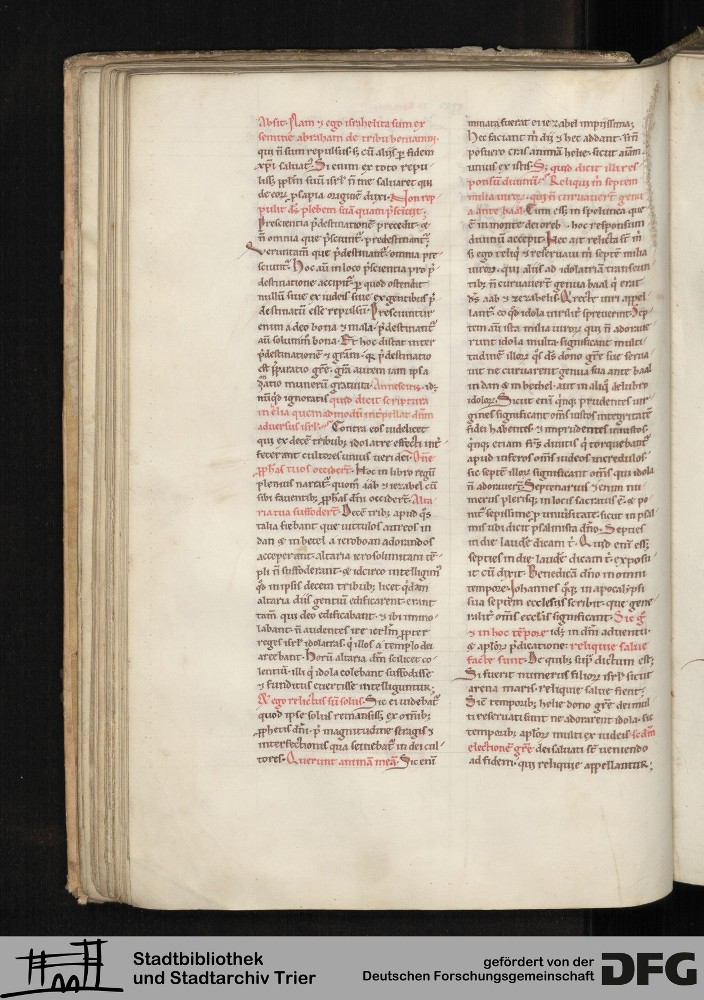 Absit. Nam & ego israhelita sum ex
semine abraham de tribu beniamin.
qui n̄ sum repulsus s; cū alijs p̄ fidem
xp̄i saluat᷒. Si enim ex toto repu
liss; pp̄lm suū isrl̄ n̄ me saluaret qui
de eor; ꝓsapia origine duxi. Non rep
pulit ds̄ plebem suā quam p̄sciuit.
Prescientia p̄destinatione precedit. &
n̄ omnia que p̄sciunt᷒. predestinant᷒.
Veruntam̄ que p̄destinant᷒ omnia pre
sciunt᷒. Hoc aū in loco p̄scientia pro p̄
destinatione accipit᷒. p̄ quod ostendit
nullū siue ex iudeis siue ex gentibus p̄
destinatū esse repulsū. Presciuntur
enim a deo bona & mala. p̄destinant᷒
aū solumm̄ bona. Et hoc distat inter
p̄destinationē & grām. qr̄ p̄destinatio
est p̄paratio grē. grā autem iam ipsa
datio munerū gratuita. An nescitis. id;
nūqd ignoratis quid dicit scriptura
in elia quemadmodū int̄pellat dn̄m
aduersus isrl̄. Contra eos uidelicet
qui ex decē tribub; idolatre effecti int̄
fecerant cultores unius ueri dei. Dn̄e
ꝓphas tuos occider̄t. Hoc in libro regū
plenius narrat᷒. quom̄ aab & iezabel cū
sibi fauentib; ꝓphas dn̄i occider̄t. Alta
ria tua suffoder̄t. Decē trib; apud qs
talia fiebant que uitulos aureos in
dan & in betel a ieroboan adorandos
acceperant. altaria ierosolimitani tē
pli n̄ suffoderant. & idcirco intelligim᷒
qd in ipsis decem tribub; licet qdam
altaria diis gentiū edificarent. erant
tam̄ qui deo edificabant. & ibi immo
labant. n̄ audentes ire ierlm̄ ꝓpter
reges isrl̄ idolatras. q illos a templo dei
arcebant. Horū altaria dn̄m scilicet co
lentiū. illi q idola colebant suffodisse
& funditus euertisse intelliguntur.
& ego relictus sū solus. Sic ei uidebat᷒
quod ipse solus remansiss; ex om̄ib;
ꝓphetis dn̄i. p̄ magnitudine stragis &
interfectionis qua seuiebat᷒ in dei cul
tores. Querunt animā meā. Sic enī
minata fuerat ei iezabel impiissima;
Hec faciant m̄ dij & hec addant. n̄
posuero cras animā helie. sicut aīam
unius ex istis. S; quid dicit illi res
ponsū diuinū. Reliqui m̄ septem
milia uiror. qui n̄ curuauer̄t genu
a ante baal. Cum ess; in spelunca que
ē in monte dei oreb. hoc responsum
diuinū accepit. Nec ait relicta st̄ m̄
s; ego reliqi & reseruaui m̄ septē milia
uiror. qui alijs ad idolatriā transeun
tib; n̄ curuauer̄t genua baal q̄ erat
ds̄ aab & iezabelis. & recte uiri appel
lant᷒. eo qd idola uirilit᷒ spreuerint. Sep
tem aū ista milia uiror qui n̄ adoraue
runt idola multa significant multi
tudinē illor qs ds̄ dono grē sue serua
uit ne curuarent genua sua ante baal
in dan & in bethel. aut in aliq delubro
idolor. Sicut enī qinq; prudentes uir
gines significant om̄s iustos integritatē
fidei habentes. & imprudentes iniustos.
qinq; etiam frs̄ diuitis q torquebant᷒
apud inferos om̄s iudeos incredulos.
sic septē illor significant om̄s qui idola
n̄ adorauer̄t. Septenarius & enim nu
merus plerisq; in locis sacratus ē. & po
nit᷒ sepissime p̄ uniuersitate. sicut in psal
mis ubi dicit psalmista dn̄o. Septies
in die laudē dicam t̄. Quid enī ess;
septies in die laudē dicam t̄. exposu
it cū dixit. Benedicā dn̄o in omni
tempore. Iohannes qq; in apocalypsi
sua septem ecclesiis scribit. que gene
ralit᷒ om̄s ecclīas significant. Sic g̊
& in hoc tēpore. id; in dn̄i aduentu.
& aplor p̄dicatione. reliquie salue
facte sunt. De quib; sup̄ dictum est;
Si fuerit numerus filior isrl̄ sicut
arena maris. reliquie salue fient.
Sic temporib; helie dono grē dei mul
ti reseruati sunt ne adorarent idola. sic
temporib; aplor multi ex iudeis scdm̄
electionē grē dei saluati st̄ ueniendo
ad fidem. qui reliquie appellantur;
Stadtbibliothek
und Stadtarchiv Trier
gefördert von der
Deutschen Forschungsgemeinschaft
DFG